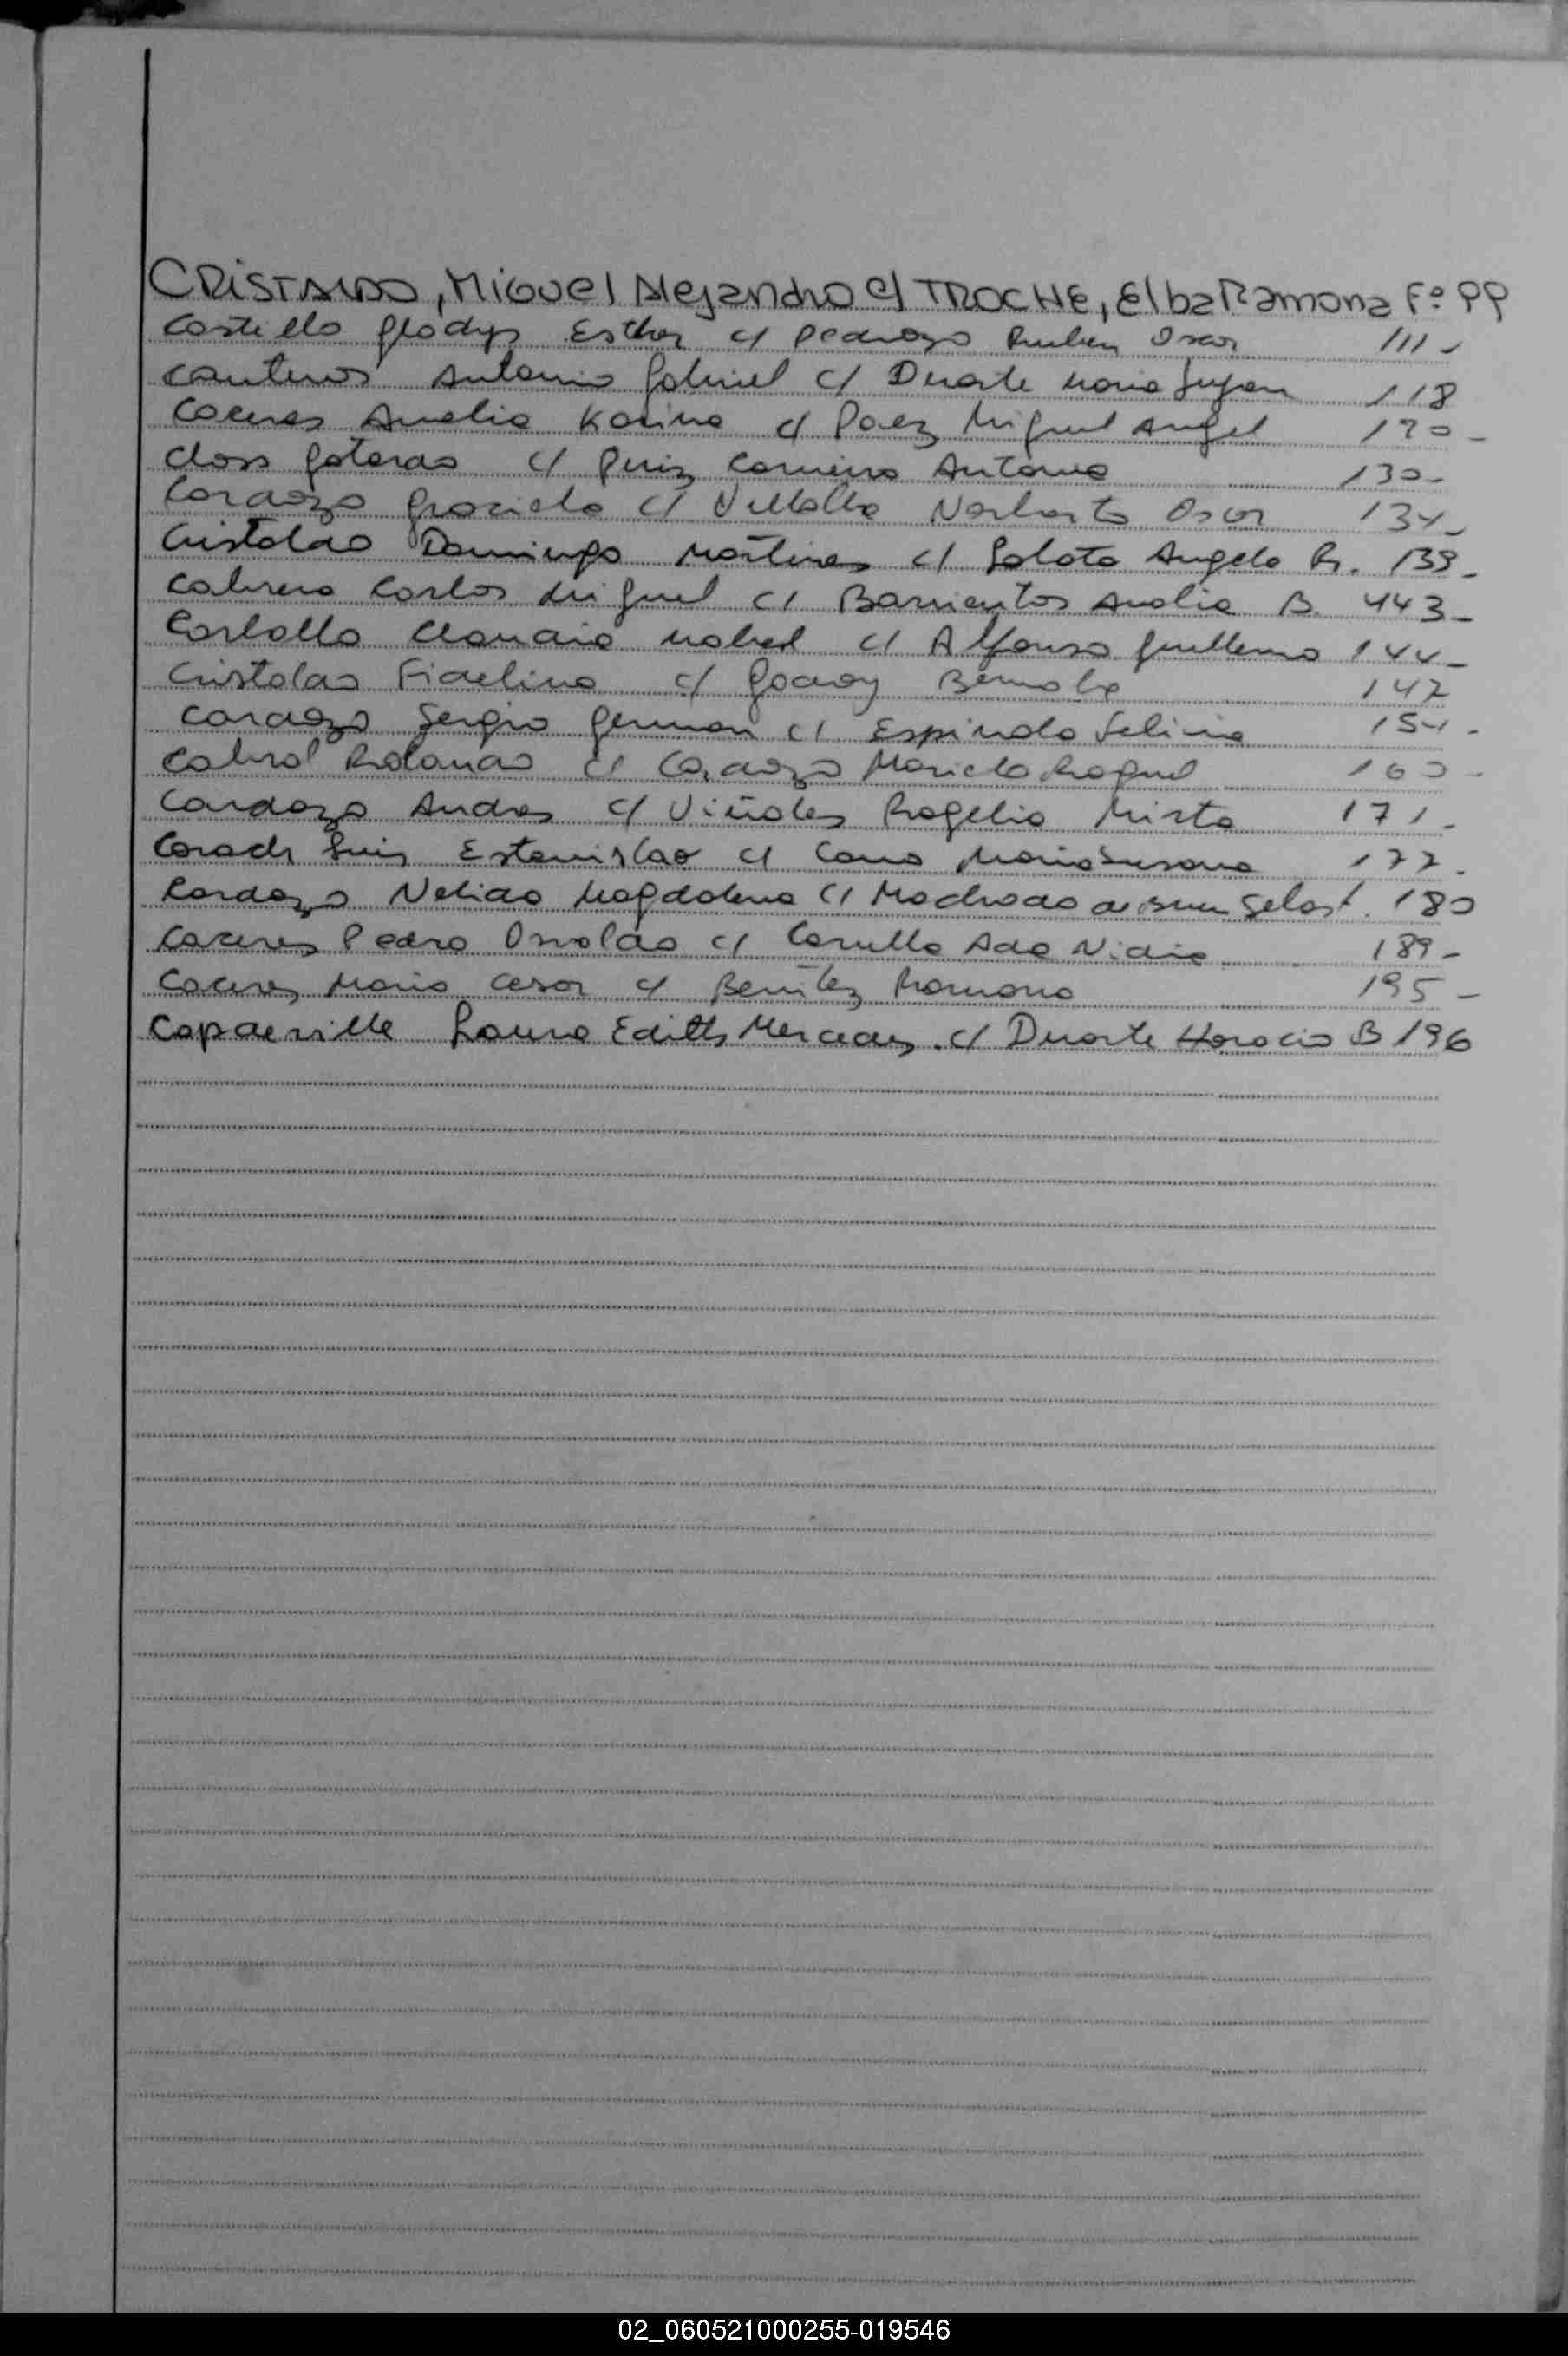 CRISTALDO, Miguel Alejandro c/ TROCHE, Elba Ramona Fº 99
Castillo Gladys Esther c/ Pedrozo Ruben Oscar 111-
Canteros Antonio Gabriel c/ Duarte Maria Lujan 118
Caceres Analia Karina c/ Paez Miguel Angel 120-
Closs c/ Ruiz Carneiro Antonio 130-
Cardozo Graciela c/ Villalba Norberto Oscar 134-
Cristaldo Domingo Martires c/ Angela R. 139-
Cabrera Carlos Miguel c/ Barrientos Analia B. 143-
Carballo Claudia Mabel c/ Alfonso Guillermo 144-
Cristaldo Fidelino c/ Godoy Bernabe 147
Cardozo Sergio German c/ Espindola 154-
Cabral Rolando c/ Cardozo Mariela Raquel 160-
Cardozo Andres c/ Viñales Rogelia Mirta 171-
Luis Estanislao c/ Cano Maria Susana 177.
Cardozo Nelida Magdalena c/ Machado 180
Caceres Pedro Osvaldo c/ Carullo Ada Nidia 189-
Caceres Mario Cesar c/ Benitez Romana 195-
Capdeville Laura Edith Mercedes. c/ Duarte Horacio B 196
02_060521000255-019546